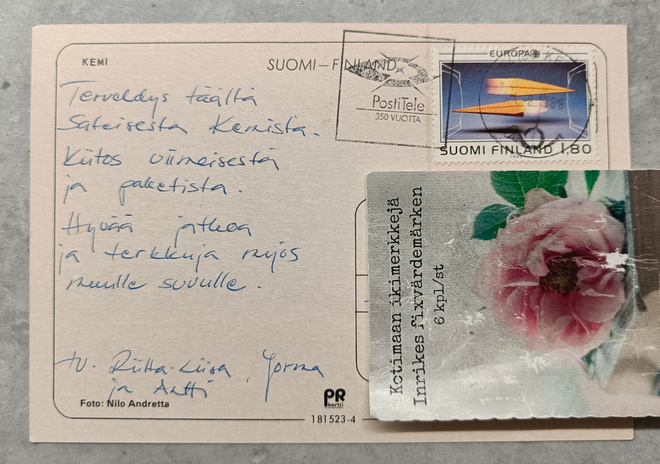 KEMI
SUOMI-FINLAND
EUROPA
PostiTele
350 VUOTTA
SUOMI FINLAND 1,80
Terveldys täältä
Sateisesta Kemistä.
Kiitos viimeisestä
ja paketista.
Hyvää jatkoa
ja terkkuja myös
muulle suvulle.
tv. Riitta-Liisa, Jorma
ja Antti
Foto: Nilo Andretta
PR
kortti
181523-4
Kotimaan ikimerkkejä
Inrikes fixvärdemärken
6 kpl/st